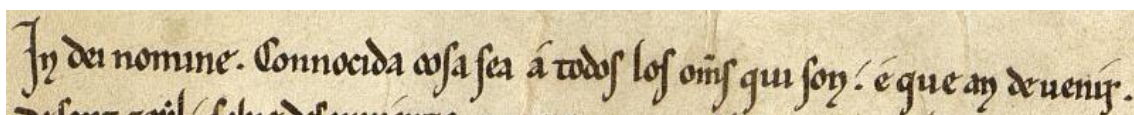 In dei nomine. Connocida cosa sea á todos los om̅s qui son: é que an de uenir.